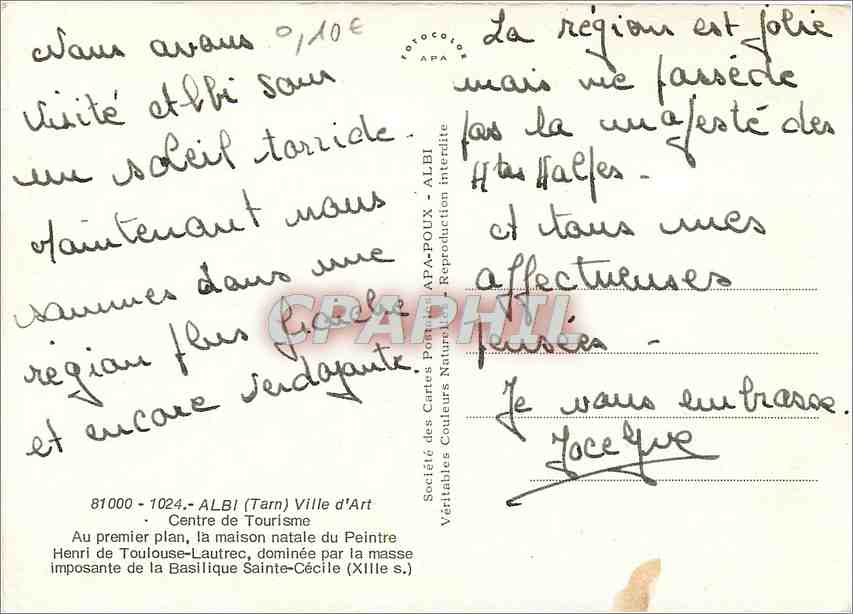 Nous avons 0,10€
visité Albi sous
un soleil torride.
Maintenant nous
sommes dans une
région plus fraiche
et encore verdoyante.
La région est jolie
mais ne possède
pas la majesté des
Htes Halpes -
et tous mes
affectueuses
pensées -
Je vous embrasse.
Jocelyne
FOTOCOLOR
APA
Société des Cartes Postales APA-POUX - ALBI
Véritables Couleurs Naturelles - Reproduction interdite
CPAPHIL
81000 - 1024.- ALBI (Tarn) Ville d'Art
Centre de Tourisme
Au premier plan, la maison natale du Peintre
Henri de Toulouse-Lautrec, dominée par la masse
imposante de la Basilique Sainte-Cécile (XIIIe s.)